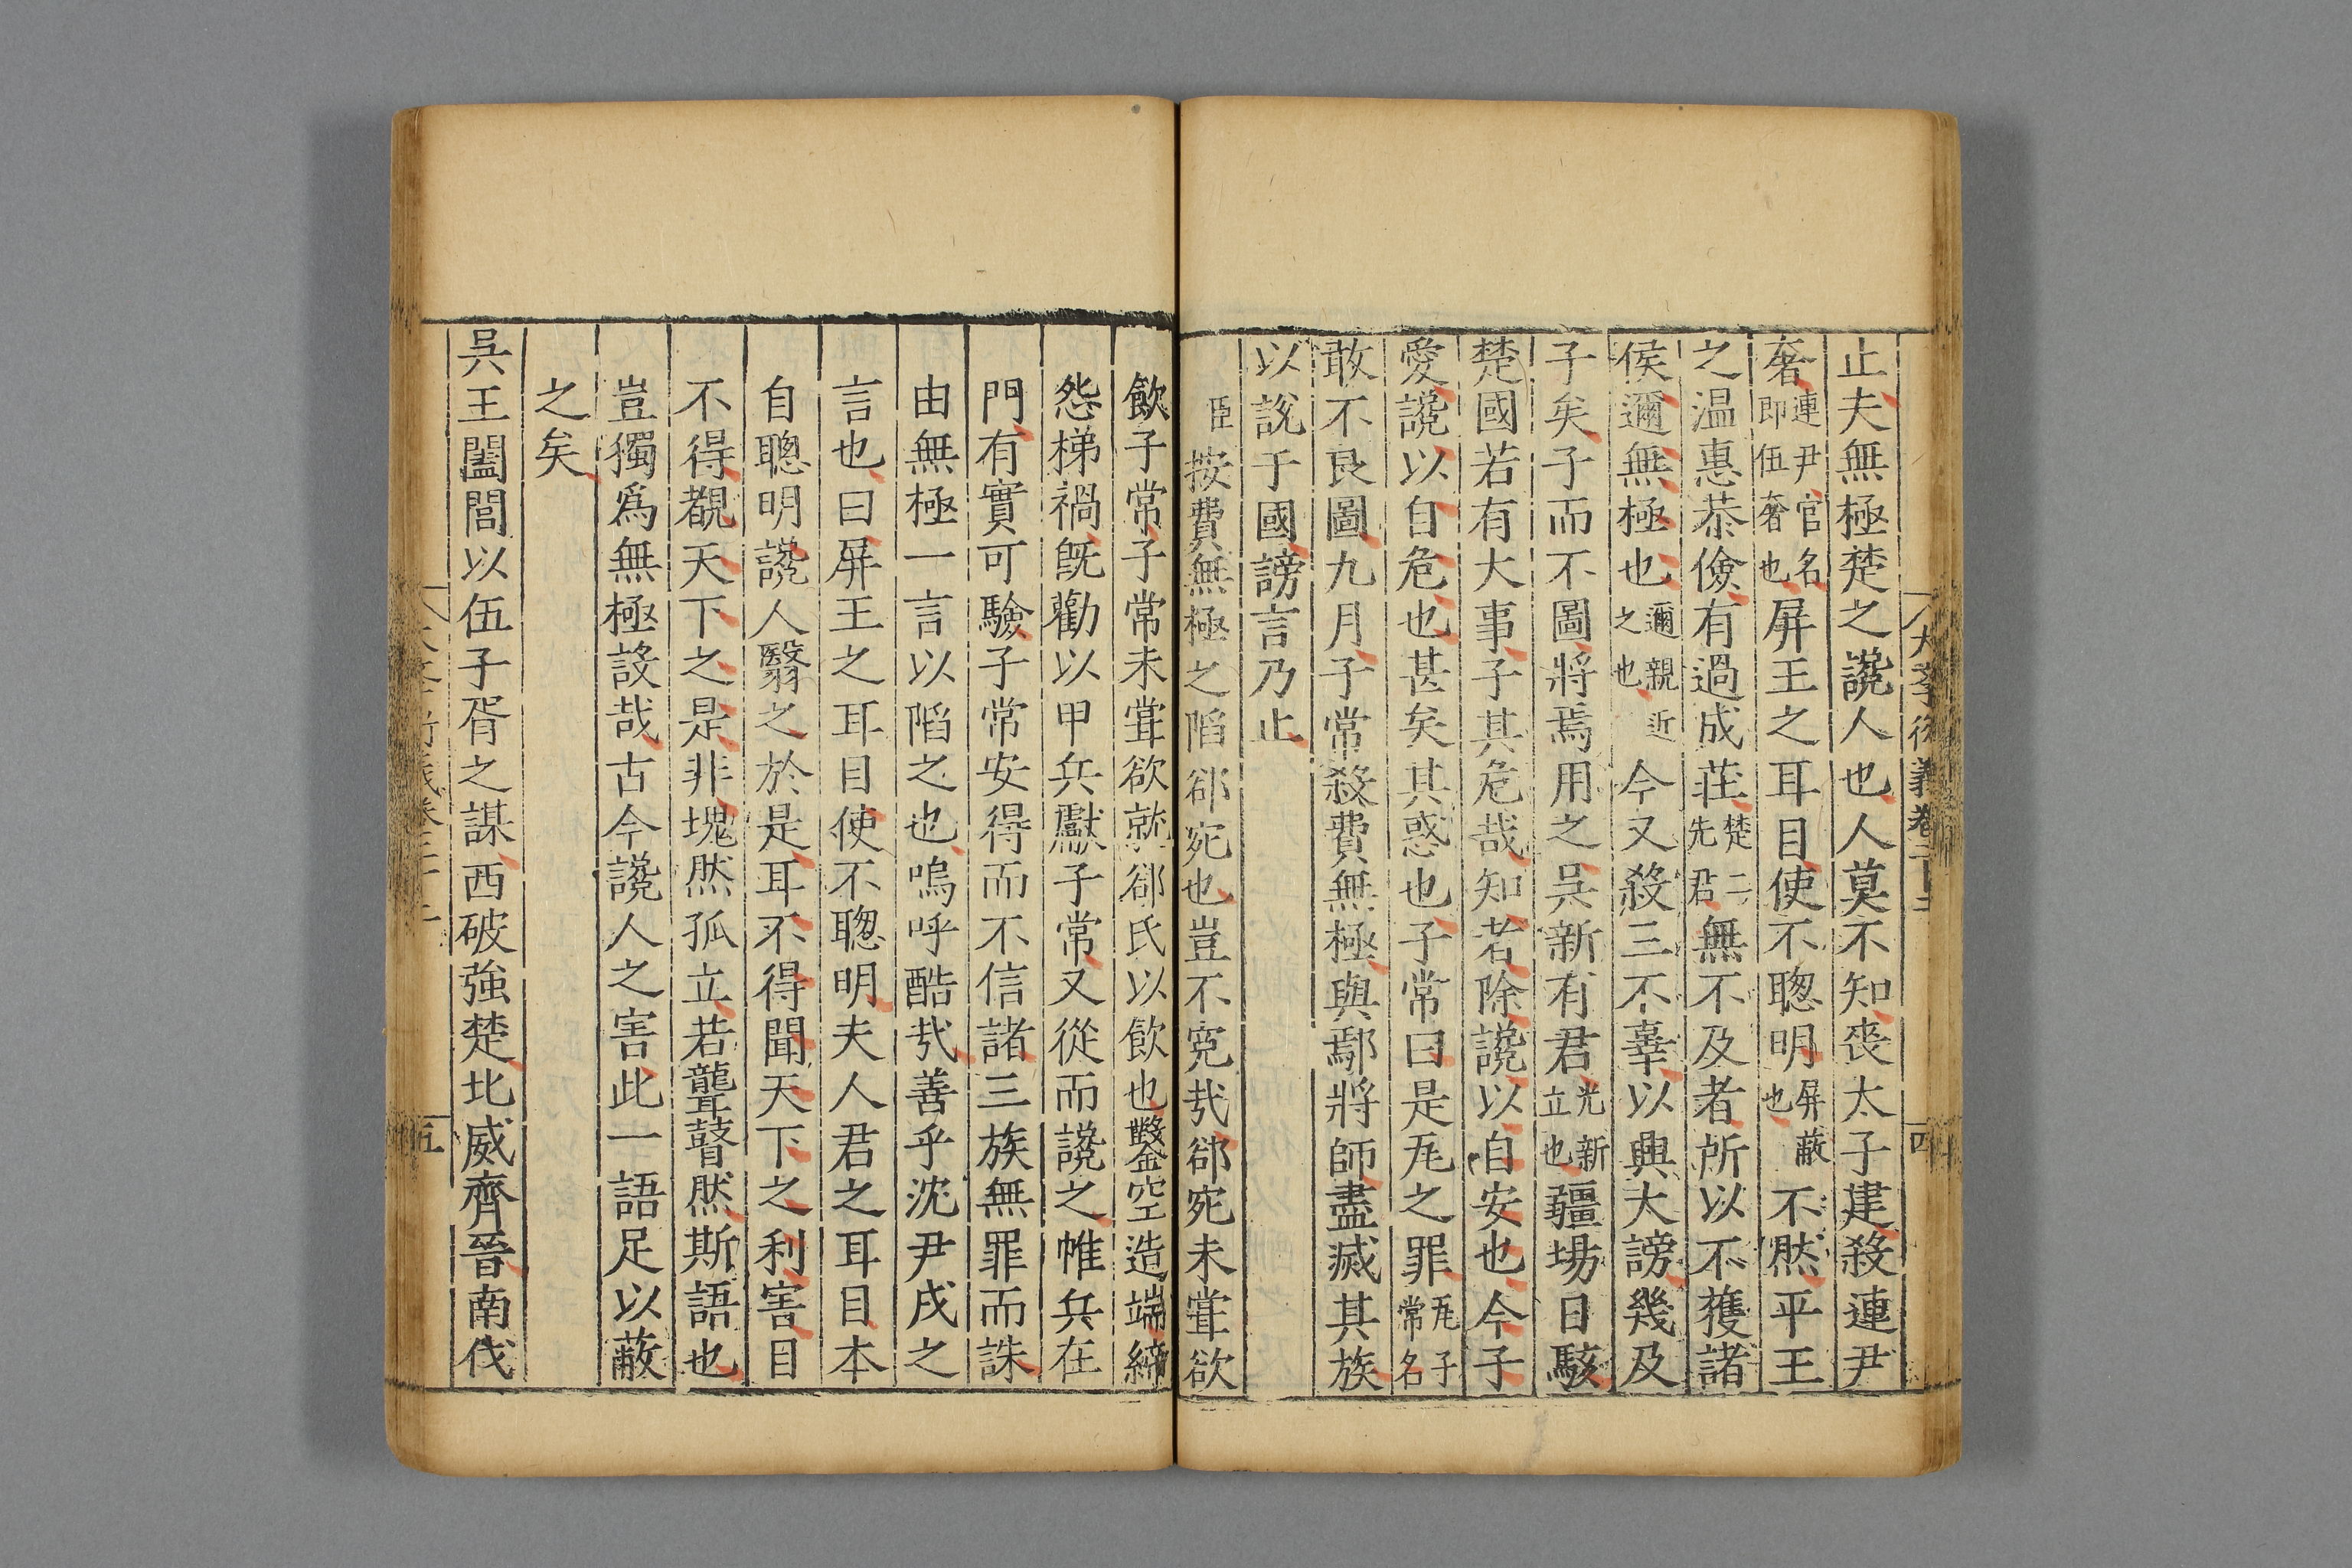 大學衍義卷二十 四
止夫無極楚之讒人也人莫不知喪太子建殺連尹
奢連尹官名即伍奢也屏王之耳目使不聦明屏蔽也不然平王
之温惠恭儉有過成莊楚二先君無不及者所以不獲諸
侯邇無極也邇親近之也今又殺三不辜以興大謗幾及
子矣子而不圖將焉用之吳新有君光新立也疆埸日駭
楚國若有大事子其危哉知者除讒以自安也今子
愛讒以自危也甚矣其惑也子常曰是瓦之罪瓦子常名
敢不良圖九月子常殺費無極與鄢將師盡滅其族
以説于國謗言乃止
臣按費無極之陷郤宛也豈不冤哉郤宛未嘗欲
飲子常子常未嘗欲就郤氏以飲也鑿空造端締
怨梯禍旣勸以甲兵獻子常又從而讒之帷兵在
門有實可驗子常安得而不信諸三族無罪而誅
由無極一言以陷之也嗚呼酷哉善乎沈尹戌之
言也曰屏王之耳目使不聦明夫人君之耳目本
自聰明讒人翳之於是耳不得聞天下之利害目
不得覩天下之是非塊然孤立若聾瞽然斯語也
豈獨爲無極設哉古今讒人之害此一語足以蔽
之矣
吳王闔閭以伍子胥之謀西破強楚北威齊晉南伐
五